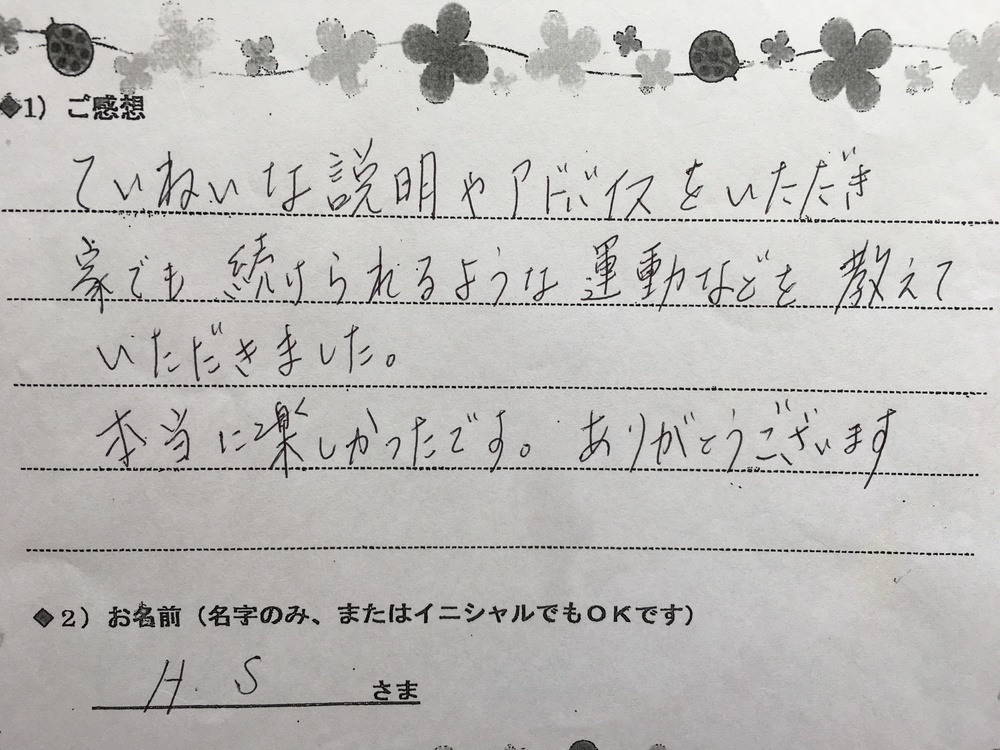 ◆1）ご感想
ていねいな説明やアドバイスをいただき
家でも続けられるような運動などを教えて
いただきました。
本当に楽しかったです。ありがとうございます
◆2）お名前（名字のみ、またはイニシャルでもOKです）
H.S さま